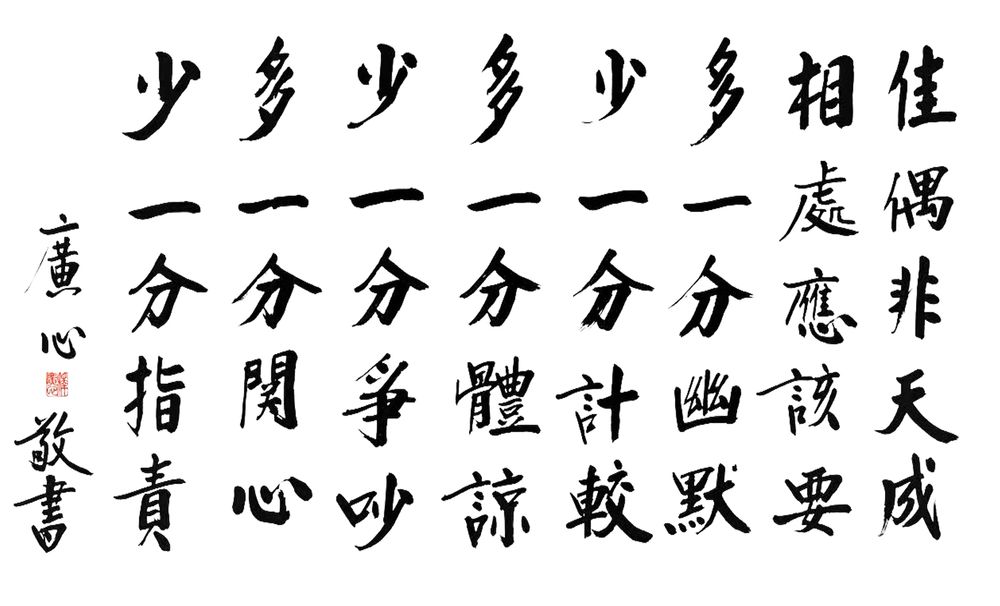 佳偶非天成
相處應該要
多一分幽默
少一分計較
多一分體諒
少一分爭吵
多一分関心
少一分指責
廣心敬書